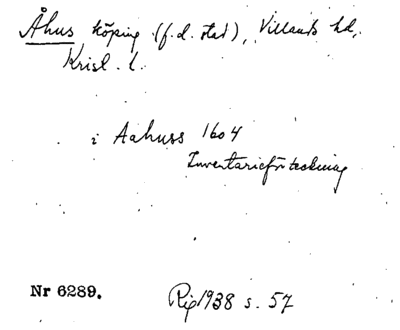 Åhus köping (f.d. stad), Villands hd,
Krist. l.
i Aahuss 1604
Inventarieförteckning
Nr 6289.
Rig 1938 s. 57